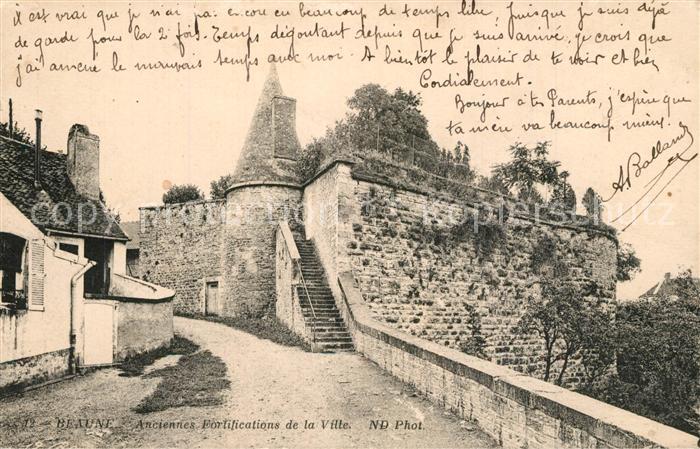 il est vrai que je n'ai pas encore eu beaucoup de temps libre, puisque je suis déjà
de garde pour la 2e fois. Temps dégoutant depuis que je suis arrivé, je crois que
j'ai amené le mauvais temps avec moi. A bientôt le plaisir de te voir et bien
Cordialement.
Bonjour à tes Parents, j'espère que
ta mère va beaucoup mieux.
A Balland
12 - BEAUNE. - Anciennes Fortifications de la Ville. ND Phot.